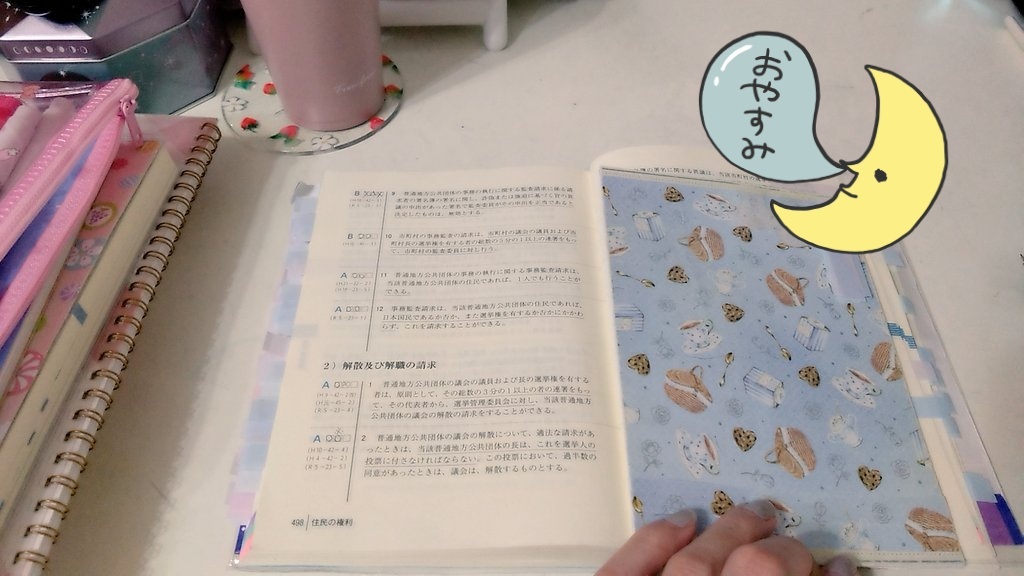 おやすみ
B
9 普通地方公共団体の事務の執行に関する監査請求に係る請
10 市町村の事務監査の請求は、市町村の議会の議員および市
町村長の選挙権を有する者の総数の3分の1以上の連署をもっ
て、市町村の監査委員に対し行う。
A
11 普通地方公共団体の事務の執行に関する事務監査請求は、
当該普通地方公共団体の住民であれば、1人でも行うことが
できる。
A
12 事務監査請求は、当該普通地方公共団体の住民であれば、
日本国民であるか否か、また選挙権を有するか否かにかかわ
らず、これを請求することができる。
2）解散及び解職の請求
A
1 普通地方公共団体の議会の議員および長の選挙権を有する
者は、原則として、その総数の3分の1以上の者の連署をもっ
て、その代表者から、選挙管理委員会に対し、当該普通地方
公共団体の議会の解散の請求をすることができる。
A
2 普通地方公共団体の議会の解散について、適法な請求があ
ったときは、当該普通地方公共団体の長は、これを選挙人の
投票に付さなければならない。この投票において、過半数の
同意があったときは、議会は、解散するものとする。
498 住民の権利